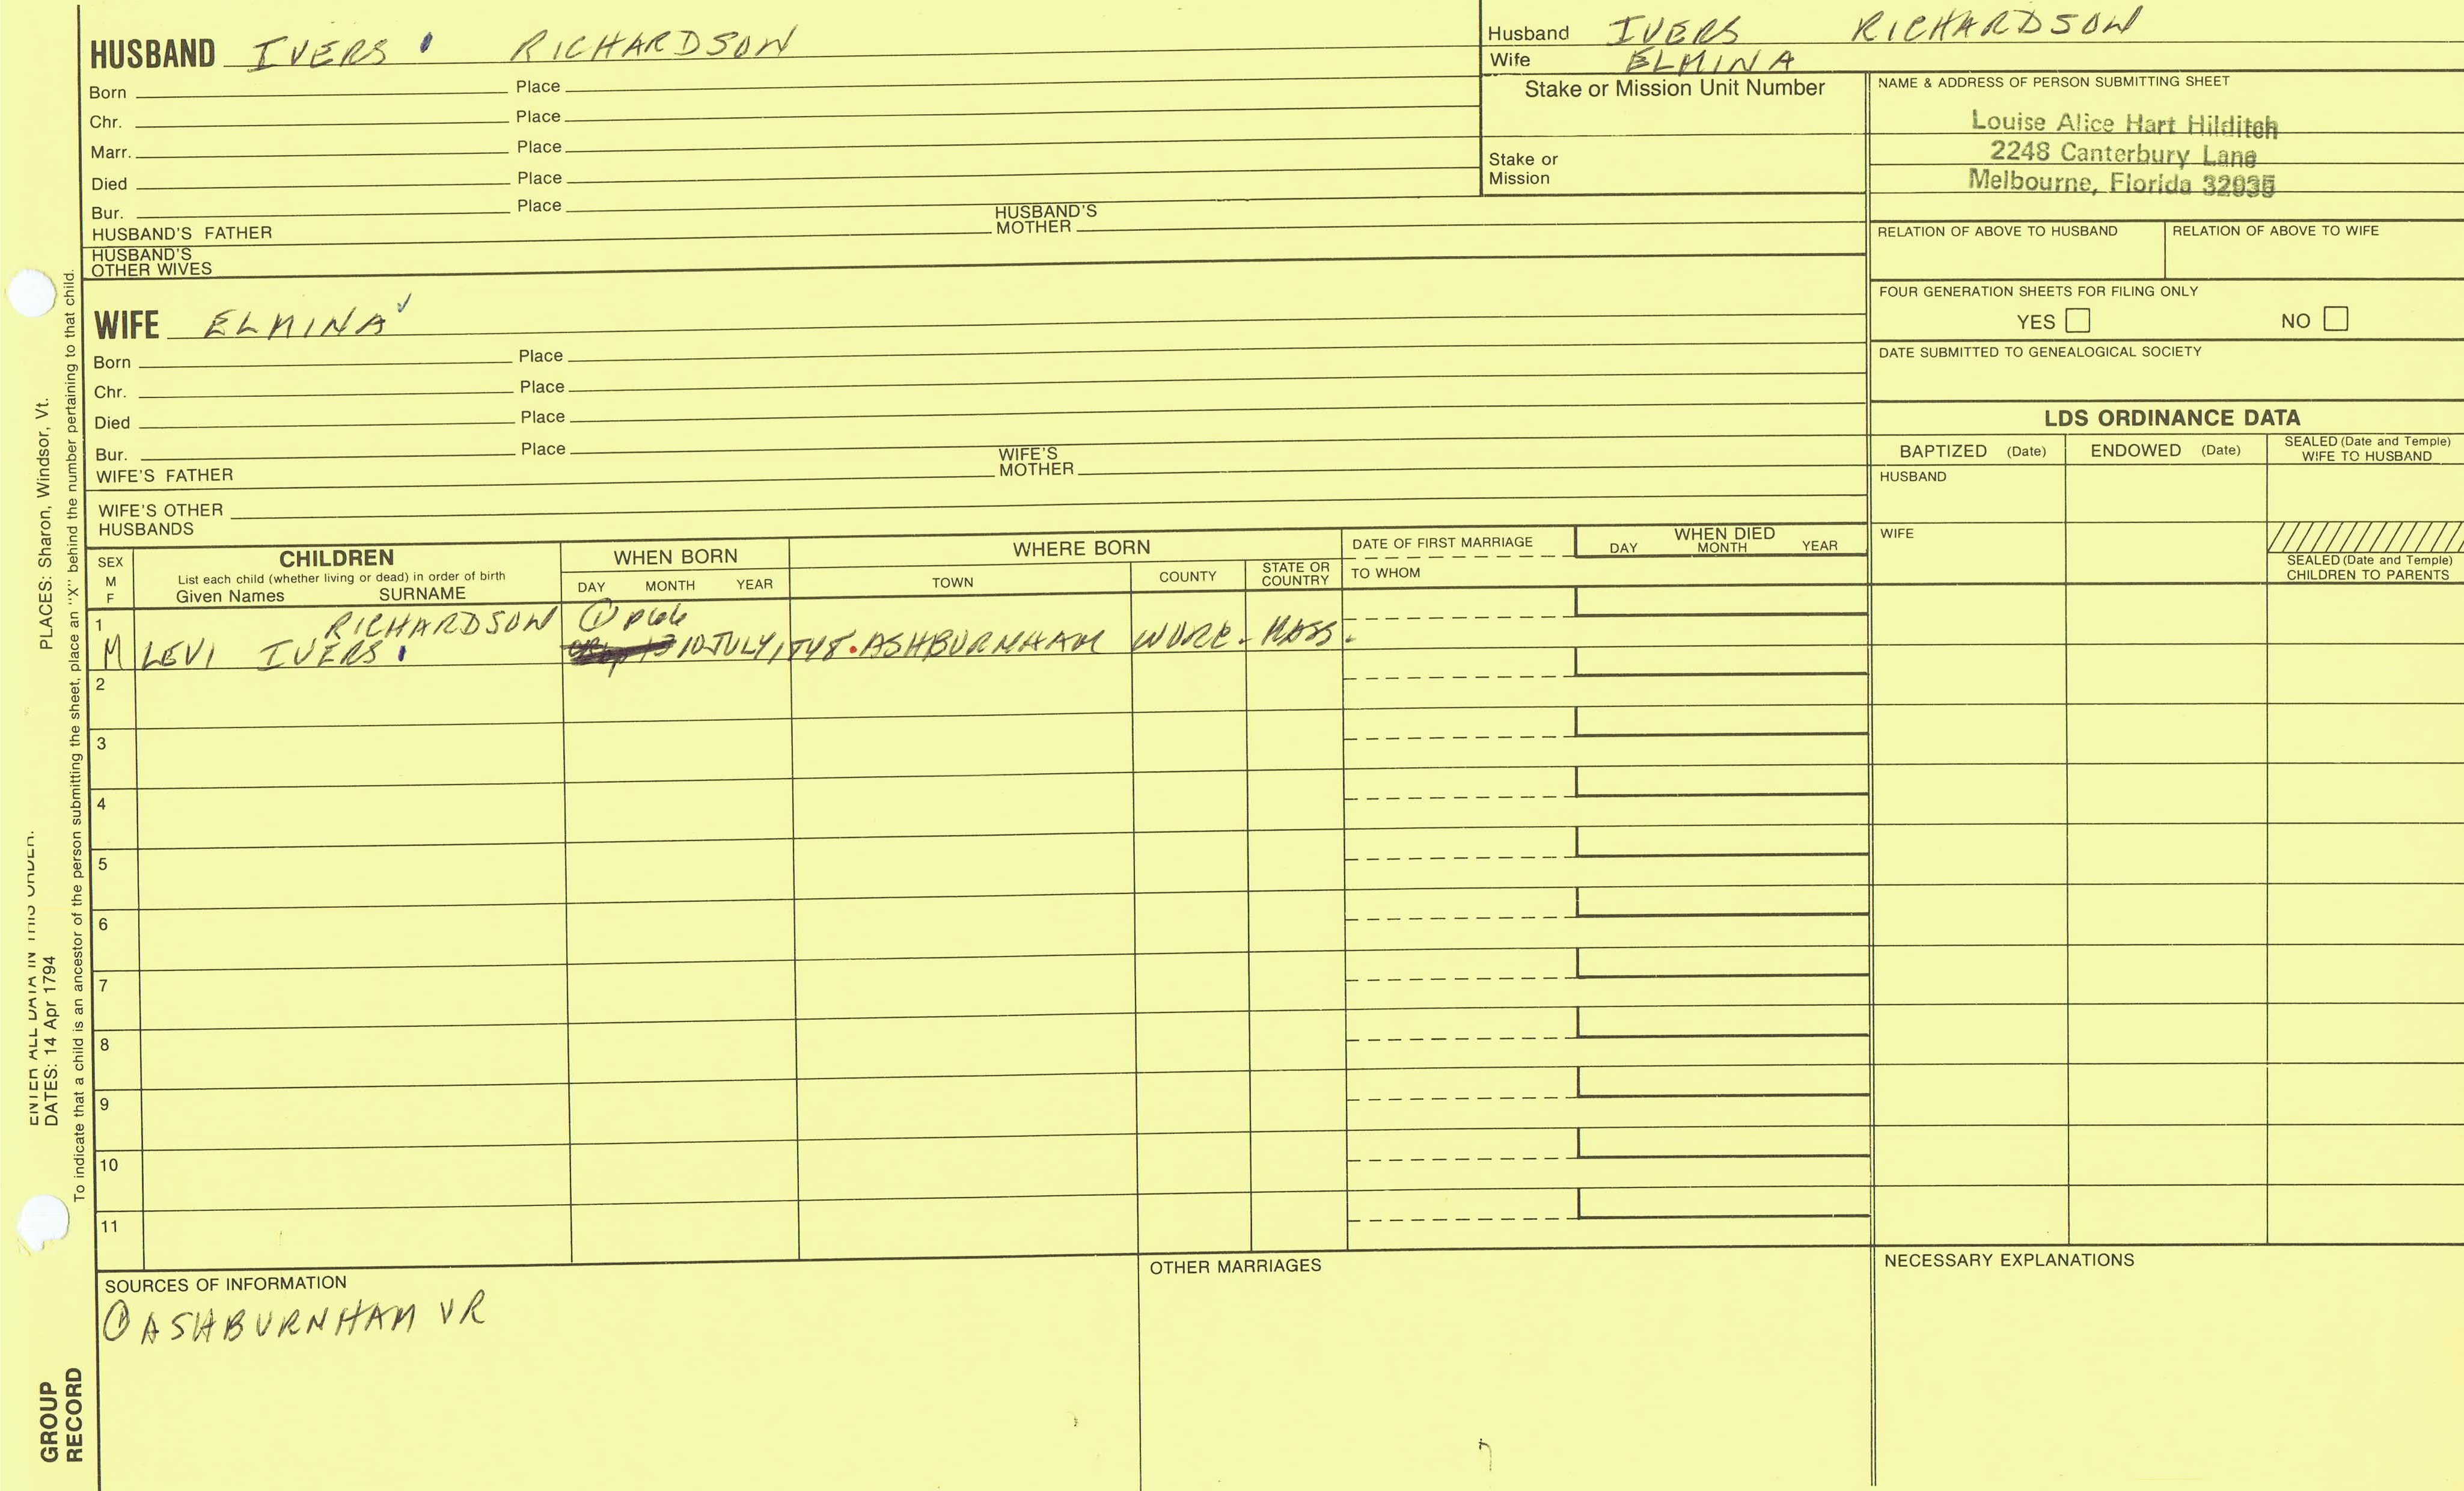 HUSBAND IVERS RICHARDSON
Born Place
Chr. Place
Marr. Place
Died Place
Bur. Place
HUSBAND'S FATHER HUSBAND'S MOTHER
HUSBAND'S OTHER WIVES
WIFE ELMINA ✓
Born Place
Chr. Place
Died Place
Bur. Place
WIFE'S FATHER WIFE'S MOTHER
WIFE'S OTHER HUSBANDS
Husband IVERS RICHARDSON
Wife ELMINA
Stake or Mission Unit Number
Stake or Mission
NAME & ADDRESS OF PERSON SUBMITTING SHEET
Louise Alice Hart Hilditch
2248 Canterbury Lane
Melbourne, Florida 32935
RELATION OF ABOVE TO HUSBAND RELATION OF ABOVE TO WIFE
FOUR GENERATION SHEETS FOR FILING ONLY
YES NO
DATE SUBMITTED TO GENEALOGICAL SOCIETY
LDS ORDINANCE DATA
BAPTIZED (Date) ENDOWED (Date) SEALED (Date and Temple) WIFE TO HUSBAND
HUSBAND
WIFE
SEALED (Date and Temple) CHILDREN TO PARENTS
SEX M F
CHILDREN
List each child (whether living or dead) in order of birth
Given Names SURNAME
WHEN BORN
DAY MONTH YEAR
WHERE BORN
TOWN COUNTY STATE OR COUNTRY
DATE OF FIRST MARRIAGE
TO WHOM
WHEN DIED
DAY MONTH YEAR
1 RICHARDSON ① p66
M LEVI IVERS 10 JULY, ASHBURNHAM WORC. MASS.
2
3
4
5
6
7
8
9
10
11
SOURCES OF INFORMATION
① ASHBURNHAM VR
OTHER MARRIAGES
NECESSARY EXPLANATIONS
ENTER ALL DATA IN THIS ORDER.
DATES: 14 Apr 1794 PLACES: Sharon, Windsor, Vt.
To indicate that a child is an ancestor of the person submitting the sheet, place an "X" behind the number pertaining to that child.
GROUP
RECORD